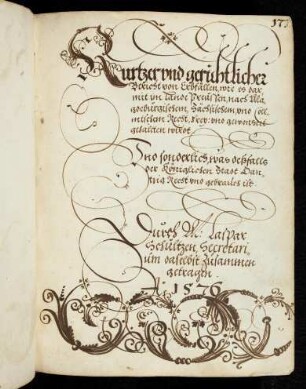 Kurtzer vnd gerichtlicher
Bericht von Erbfällen, wie es dar
mit im Lande Preussen, nach Mag
deburgischem, Sächsischem vnd Coll
mischem Recht, vnd gewonheit
gehalten wirdt.
Vnd sonderlich was desfalls
der Königlichen Stadt Dan
tzig Recht vnd gebrauch ist.
Durch M. Caspar
Schützen, Secretari
um daselbst zusammen
getragen.
A. 1576